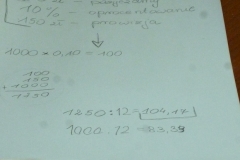 10% - oprocentowanie
150 zł - prowizja
1000 × 0,10 = 100
100
150
+ 1000
1250
1250 : 12 = 104,17
1000 : 12 =